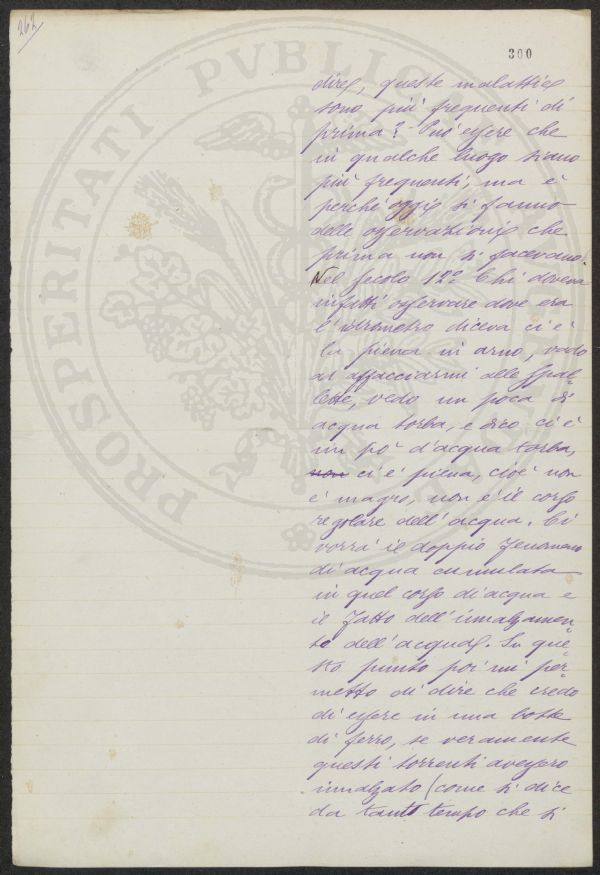 262
300
dire, queste malattie
sono più frequenti di
prima? Può essere che
in qualche luogo siano
più frequenti, ma è
perché oggi si fanno
delle osservazioni che
prima non si facevano.
Nel secolo 12º Chi doveva
infatti osservare dove era
l'idrometro diceva ci è
la piena in arno, vado
ad affacciarmi alle spal=
lette, vedo un poca di
acqua torba, e dico ci è
un pò d'acqua torba,
non ci è piena, cioè non
è magro, non è il corso
regolare dell'acqua. Ci
vorrà il doppio fenomeno
di acqua cumulata
in quel corso di acqua e
il fatto dell'innalzamen=
to dell'acqua. Su que=
sto punto poi mi per=
metto di dire che credo
di essere in una botte
di ferro, se veramente
questi torrenti avessero
innalzato (come si dice
da tanto tempo che si
PROSPERITATI PVBLICAE